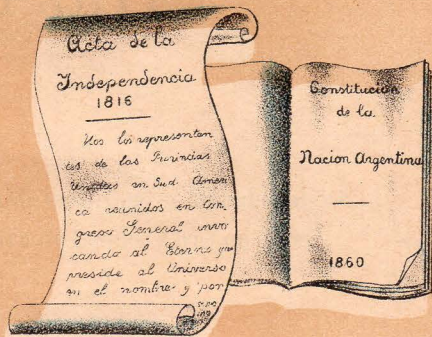 Acta de la
Independencia
1816
Nos los representan
tes de las Provincias
Unidas en Sud. Ameri
ca reunidos en Con
greso General invo
cando al Eterno que
preside al Universo
en el nombre y por
Constitución
de la
Nacion Argentina
1860